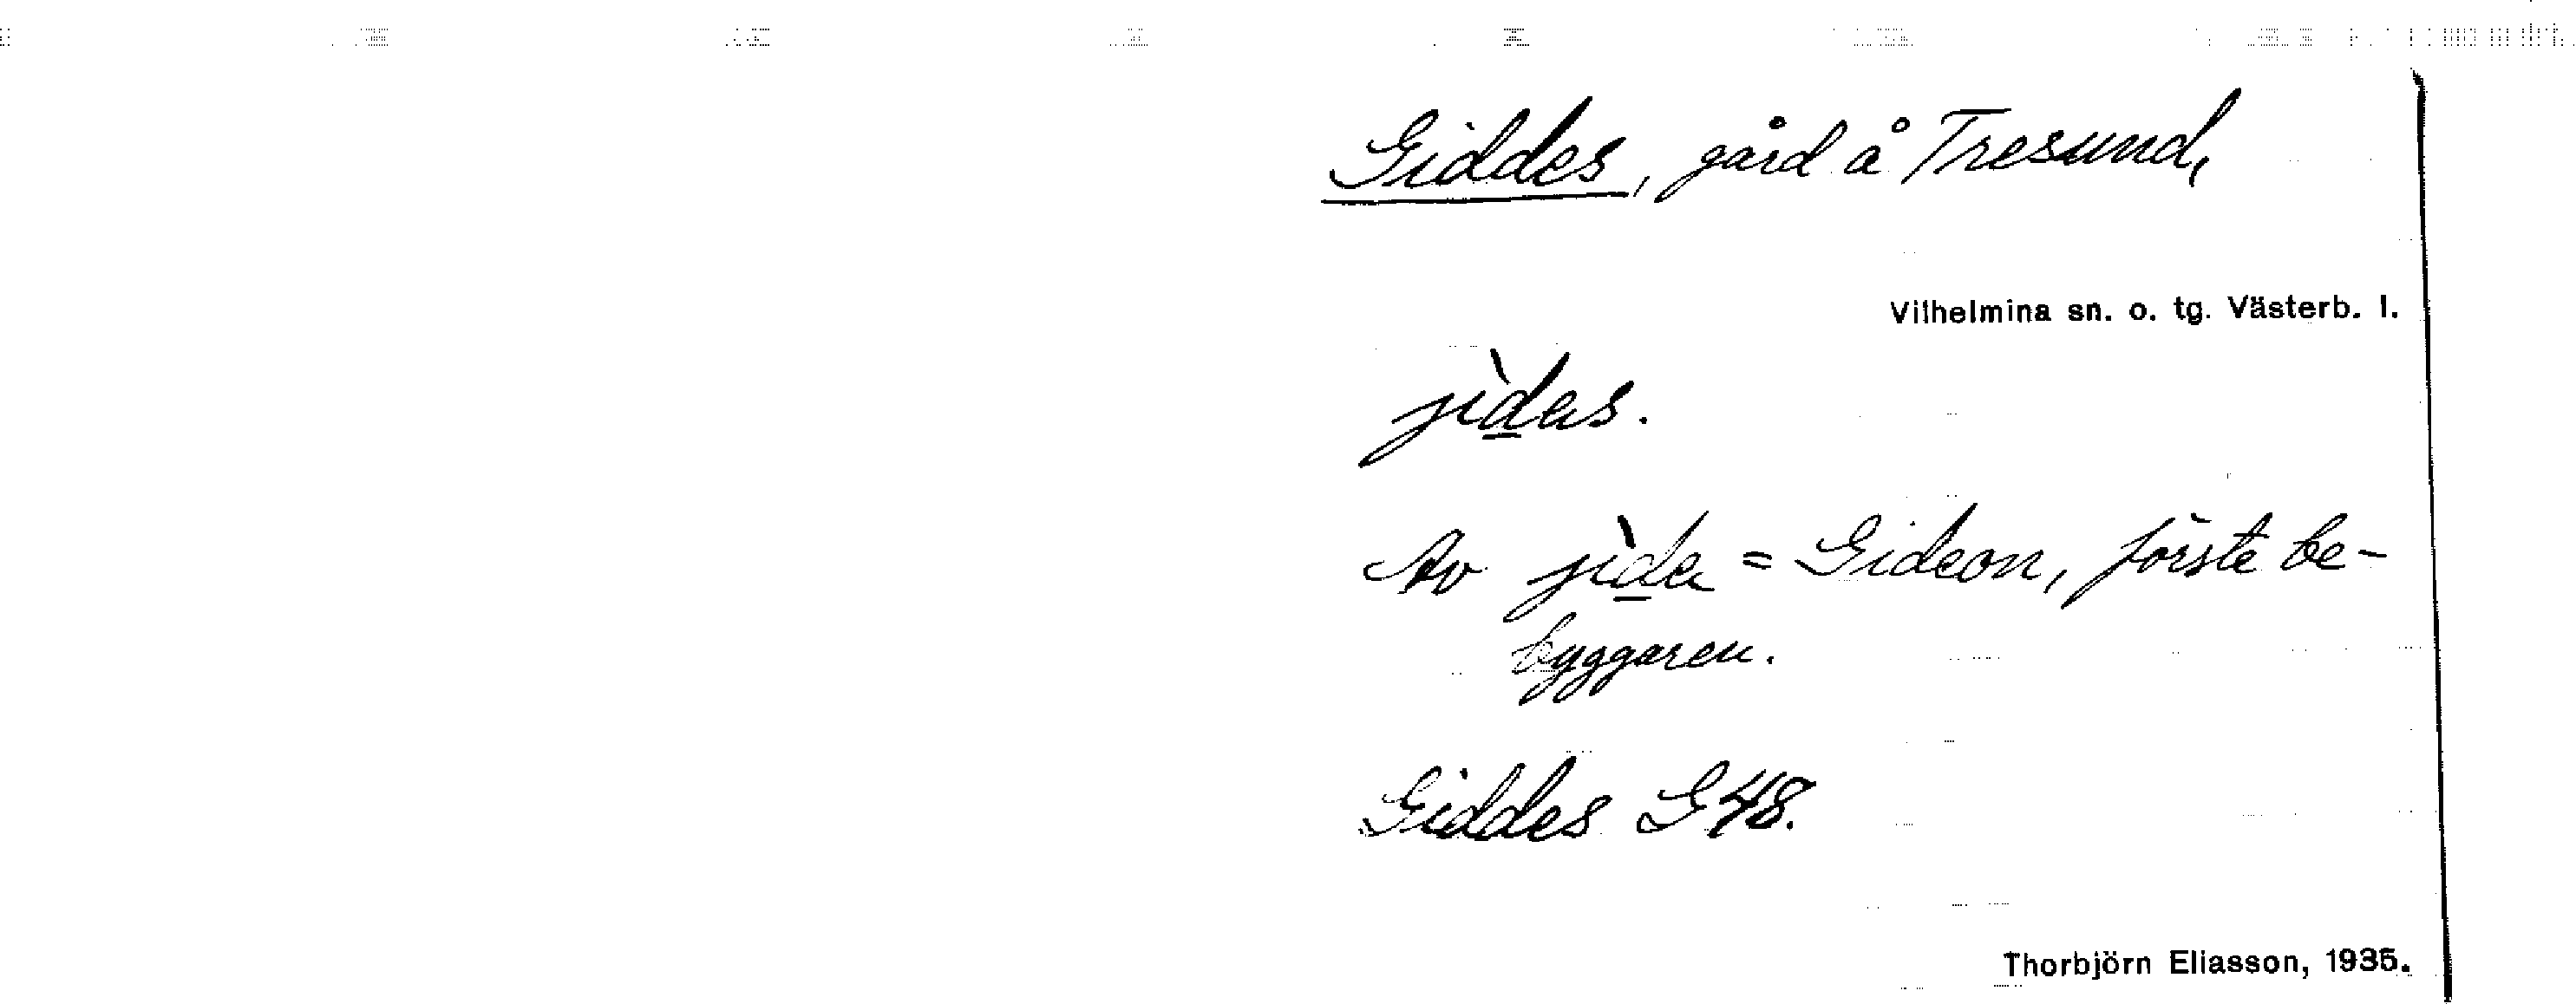 Giddes, gård å Tresund,
Vilhelmina sn. o. tg. Västerb. l.
jìd̲as.
Av jìd̲a = Gideon, förste be-
byggaren.
Giddes G48.
Thorbjörn Eliasson, 1935.